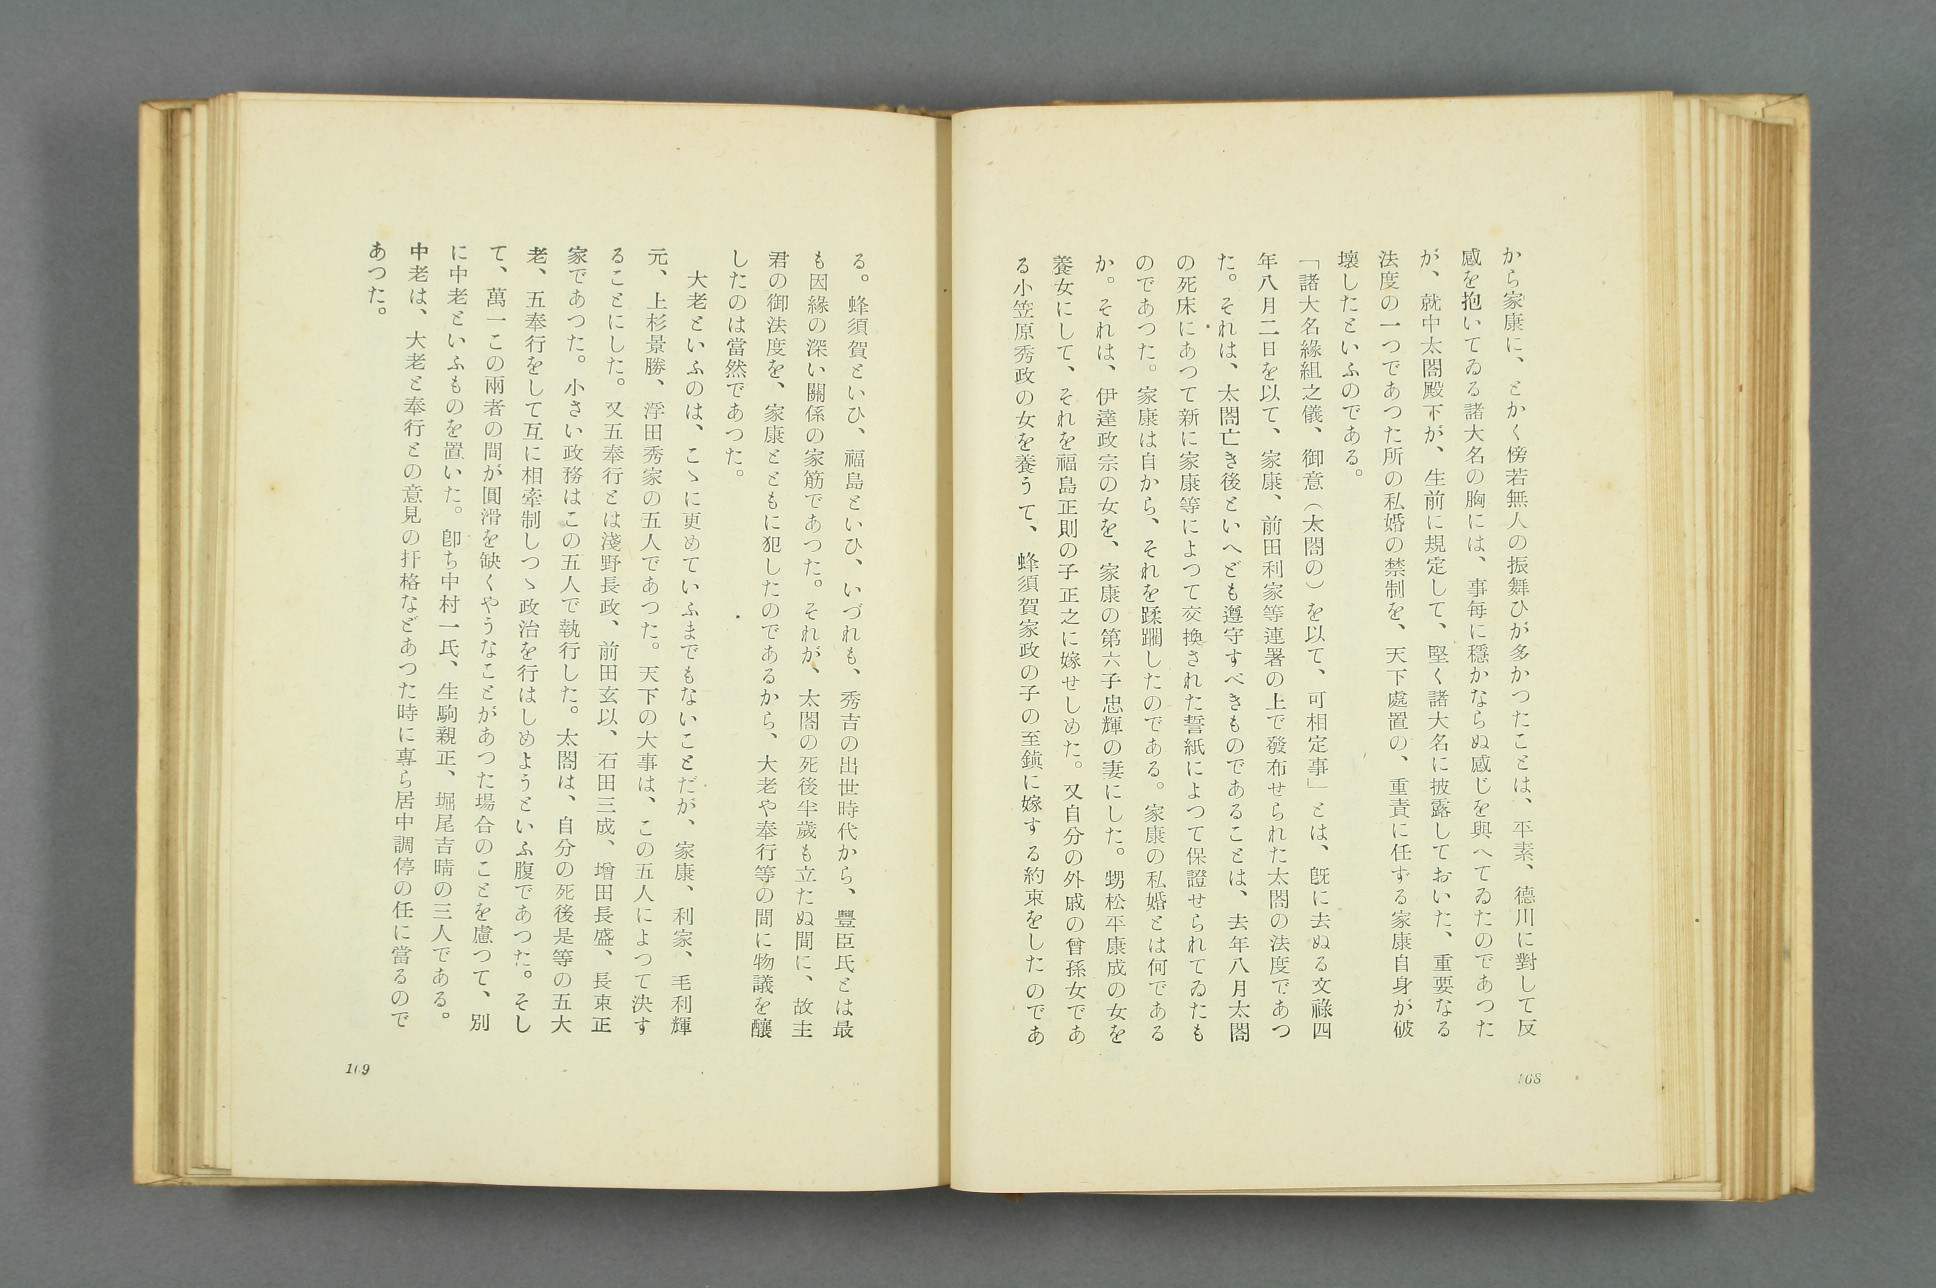 から家康に、とかく傍若無人の振舞ひが多かつたことは、平素、德川に對して反
感を抱いてゐる諸大名の胸には、事每に穩かならぬ感じを與へてゐたのであつた
が、就中太閤殿下が、生前に規定して、堅く諸大名に披露しておいた、重要なる
法度の一つであつた所の私婚の禁制を、天下處置の、重責に任ずる家康自身が破
壞したといふのである。
「諸大名緣組之儀、御意（太閤の）を以て、可相定事」とは、旣に去ぬる文祿四
年八月二日を以て、家康、前田利家等連署の上で發布せられた太閤の法度であつ
た。それは、太閤亡き後といへども遵守すべきものであることは、去年八月太閤
の死床にあつて新に家康等によつて交換された誓紙によつて保證せられてゐたも
のであつた。家康は自から、それを蹂躙したのである。家康の私婚とは何である
か。それは、伊達政宗の女を、家康の第六子忠輝の妻にした。甥松平康成の女を
養女にして、それを福島正則の子正之に嫁せしめた。又自分の外戚の曾孫女であ
る小笠原秀政の女を養うて、蜂須賀家政の子の至鎭に嫁する約束をしたのであ
168
る。蜂須賀といひ、福島といひ、いづれも、秀吉の出世時代から、豐臣氏とは最
も因緣の深い關係の家筋であつた。それが、太閤の死後半歲も立たぬ間に、故主
君の御法度を、家康とともに犯したのであるから、大老や奉行等の間に物議を釀
したのは當然であつた。
大老といふのは、こゝに更めていふまでもないことだが、家康、利家、毛利輝
元、上杉景勝、浮田秀家の五人であつた。天下の大事は、この五人によつて決す
ることにした。又五奉行とは淺野長政、前田玄以、石田三成、增田長盛、長束正
家であつた。小さい政務はこの五人で執行した。太閤は、自分の死後是等の五大
老、五奉行をして互に相牽制しつゝ政治を行はしめようといふ腹であつた。そし
て、萬一この兩者の間が圓滑を缺くやうなことがあつた場合のことを慮つて、別
に中老といふものを置いた。卽ち中村一氏、生駒親正、堀尾吉晴の三人である。
中老は、大老と奉行との意見の扞格などあつた時に專ら居中調停の任に當るので
あつた。
169